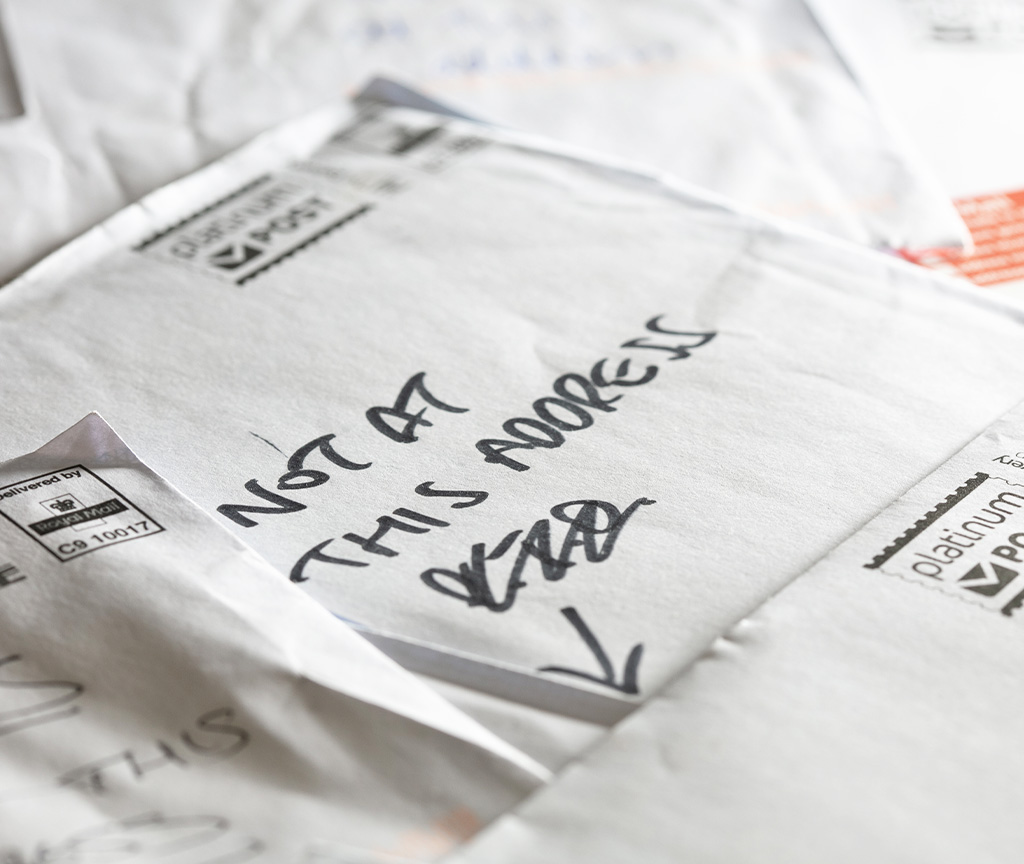 platinum
POST
NOT AT
THIS ADDRESS
delivered by
Royal Mail
C9 10017
THIS
platinum